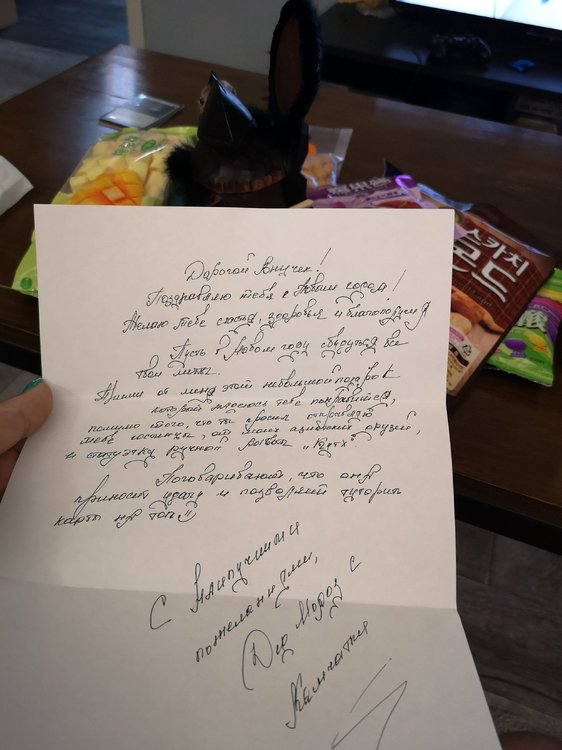 Дорогой Внучек!
Поздравляю тебя с Новым годом!
Желаю тебе счастья, здоровья и благополучия
Пусть в Новом году сбудутся все
твои мечты.
Прими от меня этот небольшой подарок
который надеюсь тебе понравится,
помимо того, что ты просил отправляю
тебе гостинцы, от моих азиатских друзей,
и статуэтку ручной работы „Кутх"
Поговаривают, что она
приносит удачу и позволяет
карты на
С Наилучшими
пожеланиями,
Дед Мороз с
Камчатки
스카치